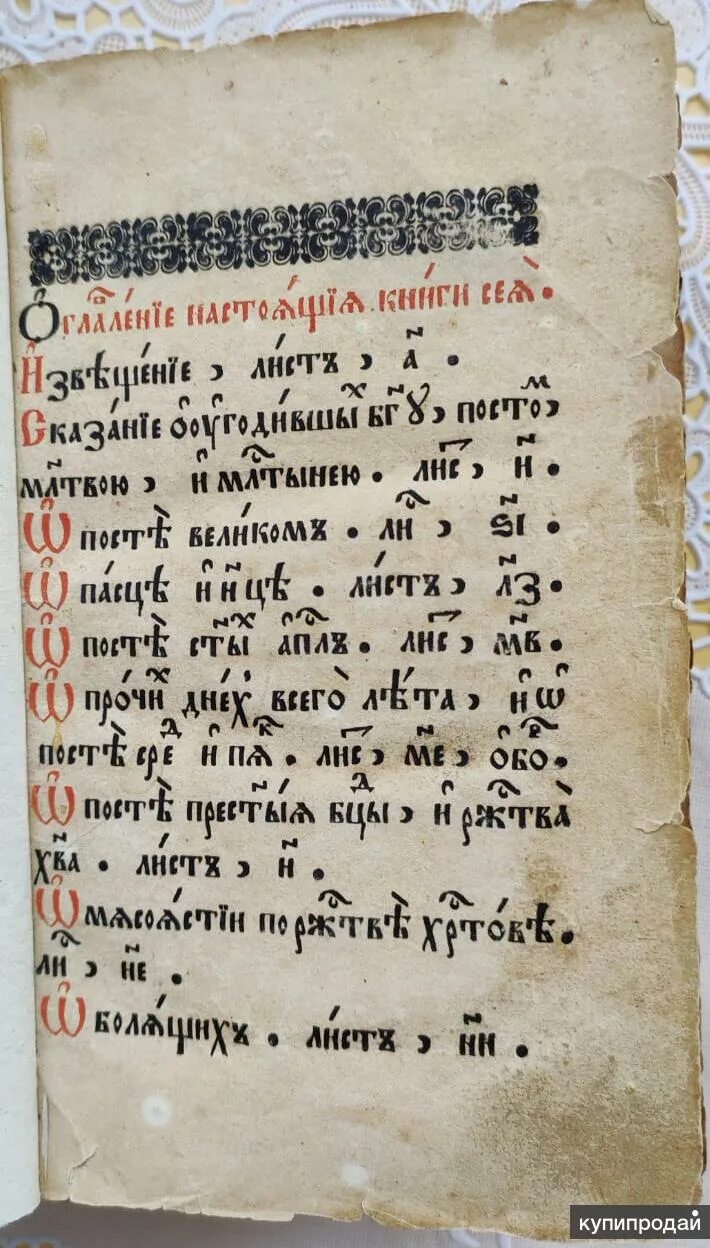 Ѻ҆гл҃ле́нїе настоѧ́щїѧ кни́ги сеѧ̀.
И҆звѣще́нїе , ли́стъ , а҃ .
Сказа́нїе ѻ҆ ᲂу҆годи́вшыⷯ бг҃ꙋ , постоⷨ ,
мл҃твою , и҆ млⷭ҇тынею . лиⷭ҇ , и҃ .
Ѡ҆ постѣ̀ вели́комъ . лиⷭ҇ , ѕ҃і .
Ѡ҆ па́сцѣ и҆ н҃цѣ . ли́стъ , л҃з .
Ѡ҆ постѣ̀ ст҃ыⷯ а҆пⷭ҇лъ . лиⷭ҇ , м҃в .
Ѡ҆ про́чиⷯ дне́хъ всегѡ̀ лѣ́та , и҆ ѡ҆
постѣ̀ среⷣ и҆ пѧⷦ҇ . лиⷭ҇ , м҃е , ѻ҆боⷬ҇ .
Ѡ҆ постѣ̀ прест҃ыѧ бцⷣы , и҆ ржⷭ҇тва̀
хв҃а . ли́стъ , н҃ .
Ѡ҆ мѧсоѧ́стїи по ржⷭ҇твѣ̀ хрⷭ҇то́вѣ .
лиⷭ҇ , н҃е .
Ѡ҆ болѧ́щихъ . ли́стъ , н҃и .
купипродай